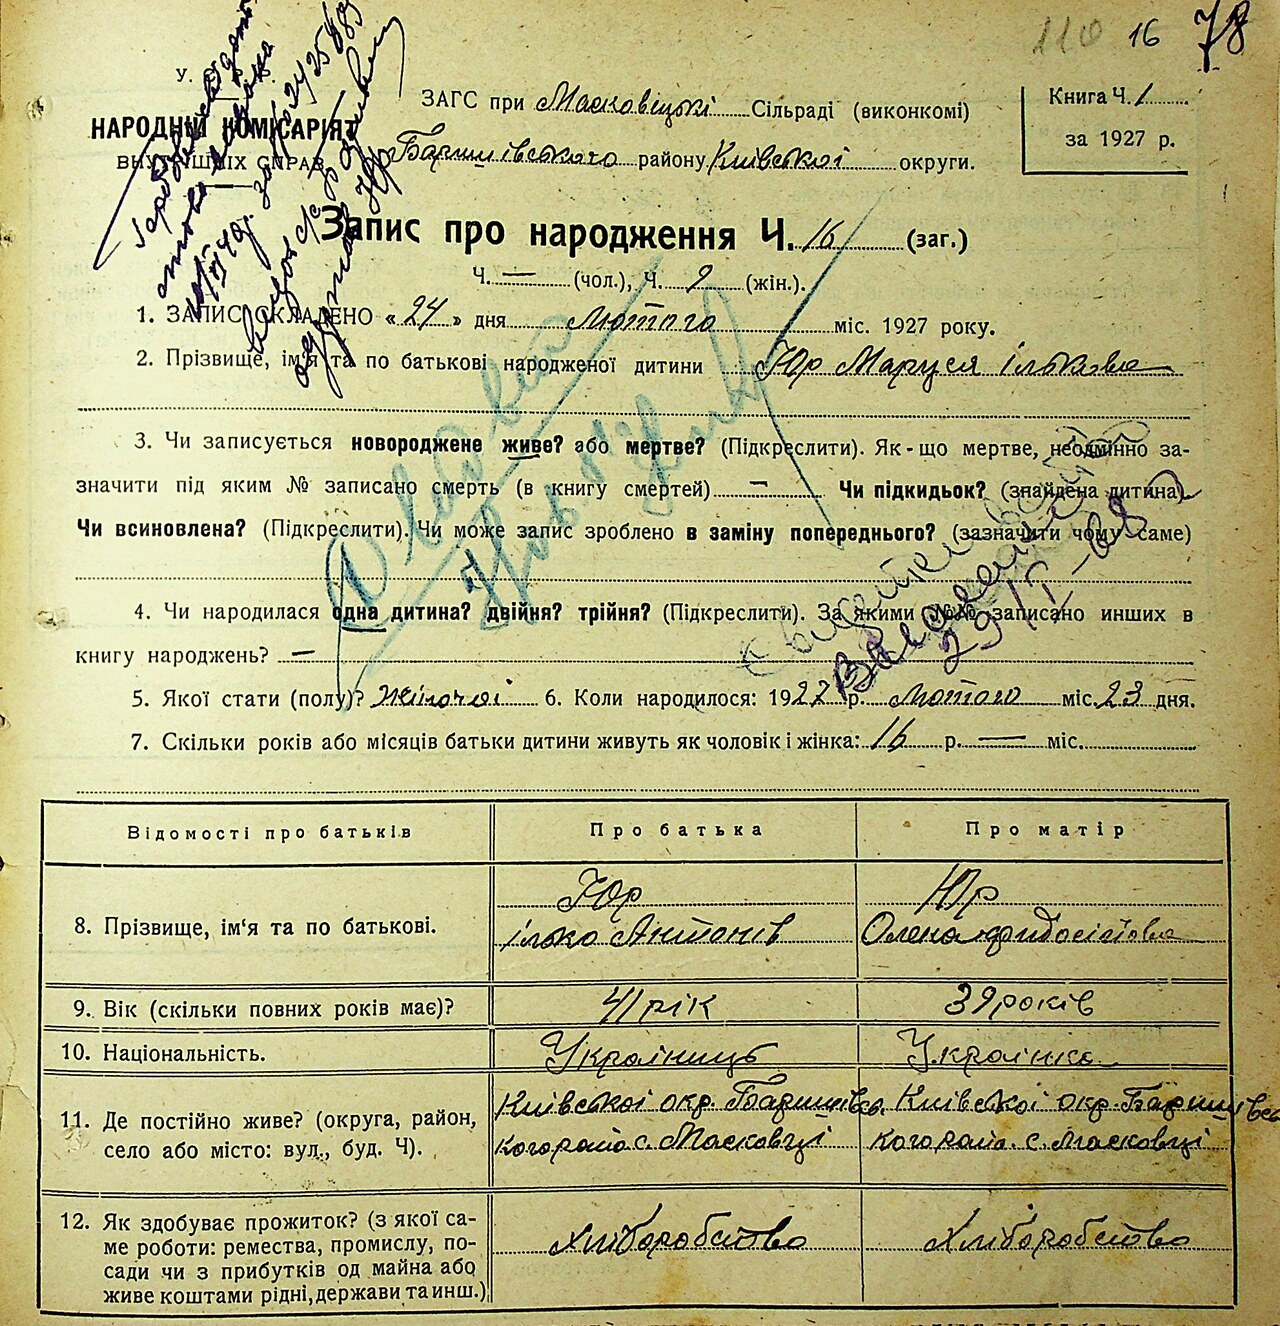 110 16 78
У. С.
НАРОДНІЙ КОМІСАРІЯТ
ВНУТРІШНІХ СПРАВ
ЗАГС при Масковецькі Сільраді (виконкомі)
Баришівського району Київської округи.
Книга Ч. 1
за 1927 р.
Запис про народження Ч. 16 (заг.)
Ч. — (чол.), Ч. 9 (жін.).
1. ЗАПИС СКЛАДЕНО « 24 » дня лютого міс. 1927 року.
2. Прізвище, ім'я та по батькові народженої дитини Юр Маруся Ількова
3. Чи записується новороджене живе? або мертве? (Підкреслити). Як-що мертве, неодмінно за-
значити під яким № записано смерть (в книгу смертей) — Чи підкидьок? (знайдена дитина)
Чи всиновлена? (Підкреслити). Чи може запис зроблено в заміну попереднього? (зазначити чому саме)
4. Чи народилася одна дитина? двійня? трійня? (Підкреслити). За якими №№ записано инших в
книгу народжень? —
29/I-68
5. Якої стати (полу)? жіночої 6. Коли народилося: 1927 р. лютого міс. 23 дня.
7. Скільки років або місяців батьки дитини живуть як чоловік і жінка: 16 р. — міс.
Відомості про батьків Про батька Про матір
8. Прізвище, ім'я та по батькові.
Юр
ілько Антонів
Юр
Олена
9. Вік (скільки повних років має)? 41 рік 39 років
10. Національність. Українець Українка
11. Де постійно живе? (округа, район,
село або місто: вул., буд. Ч).
Київської окр. Баришівсь
кого райо с. Масковці
Київської окр. Баришівсь
кого райо. с. Масковці
12. Як здобуває прожиток? (з якої са-
ме роботи: ремества, промислу, по-
сади чи з прибутків од майна або
живе коштами рідні, держави та инш.)
Хліборобство
Хліборобство